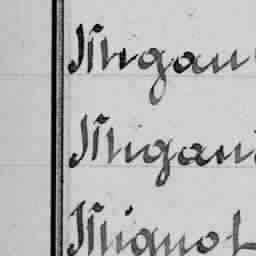 Migau
Migau
Mignot